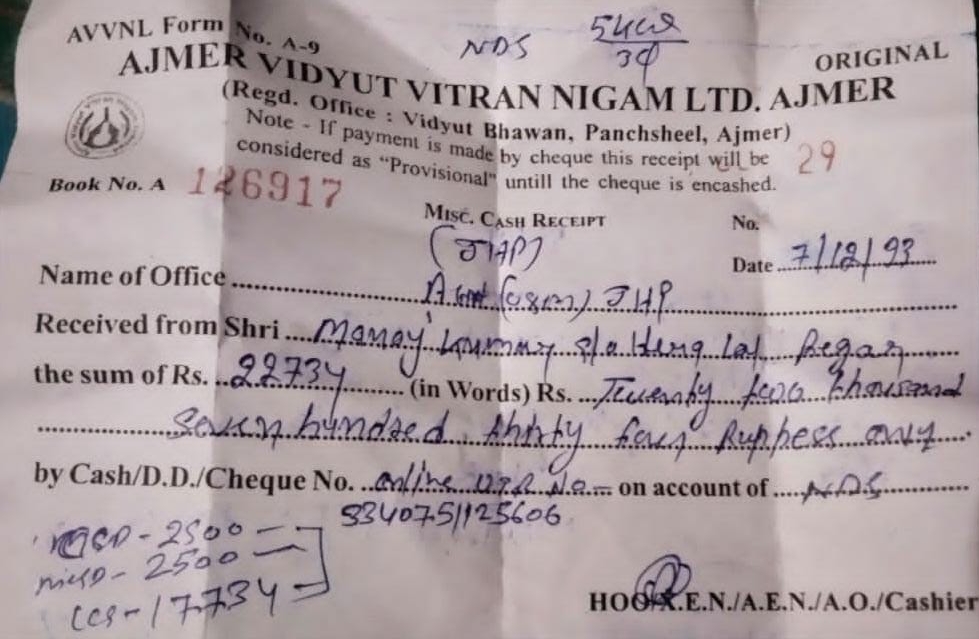 AVVNL Form No. A-9
NDS
ORIGINAL
AJMER VIDYUT VITRAN NIGAM LTD. AJMER
(Regd. Office : Vidyut Bhawan, Panchsheel, Ajmer)
Note - If payment is made by cheque this receipt will be
considered as "Provisional" untill the cheque is encashed.
29
Book No. A 126917
MISC. CASH RECEIPT
No.
(JHP)
Date 7/12/93
Name of Office JHP
Received from Shri Lal Regar
the sum of Rs. 22734 (in Words) Rs. Twenty two thousand
Seven hundred thirty four Ruphess only
by Cash/D.D./Cheque No. online UTR No. on account of NDS
3340751125606
- 2500
- 2500
CCS - 17734
HOO/X.E.N./A.E.N./A.O./Cashier